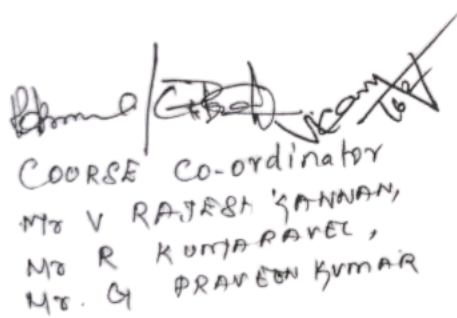 COORSE Co-ordinator
Mr V RAJESH KANNAN,
Mr R KUMARAVEL,
Mr. G PRAVEEN KUMAR